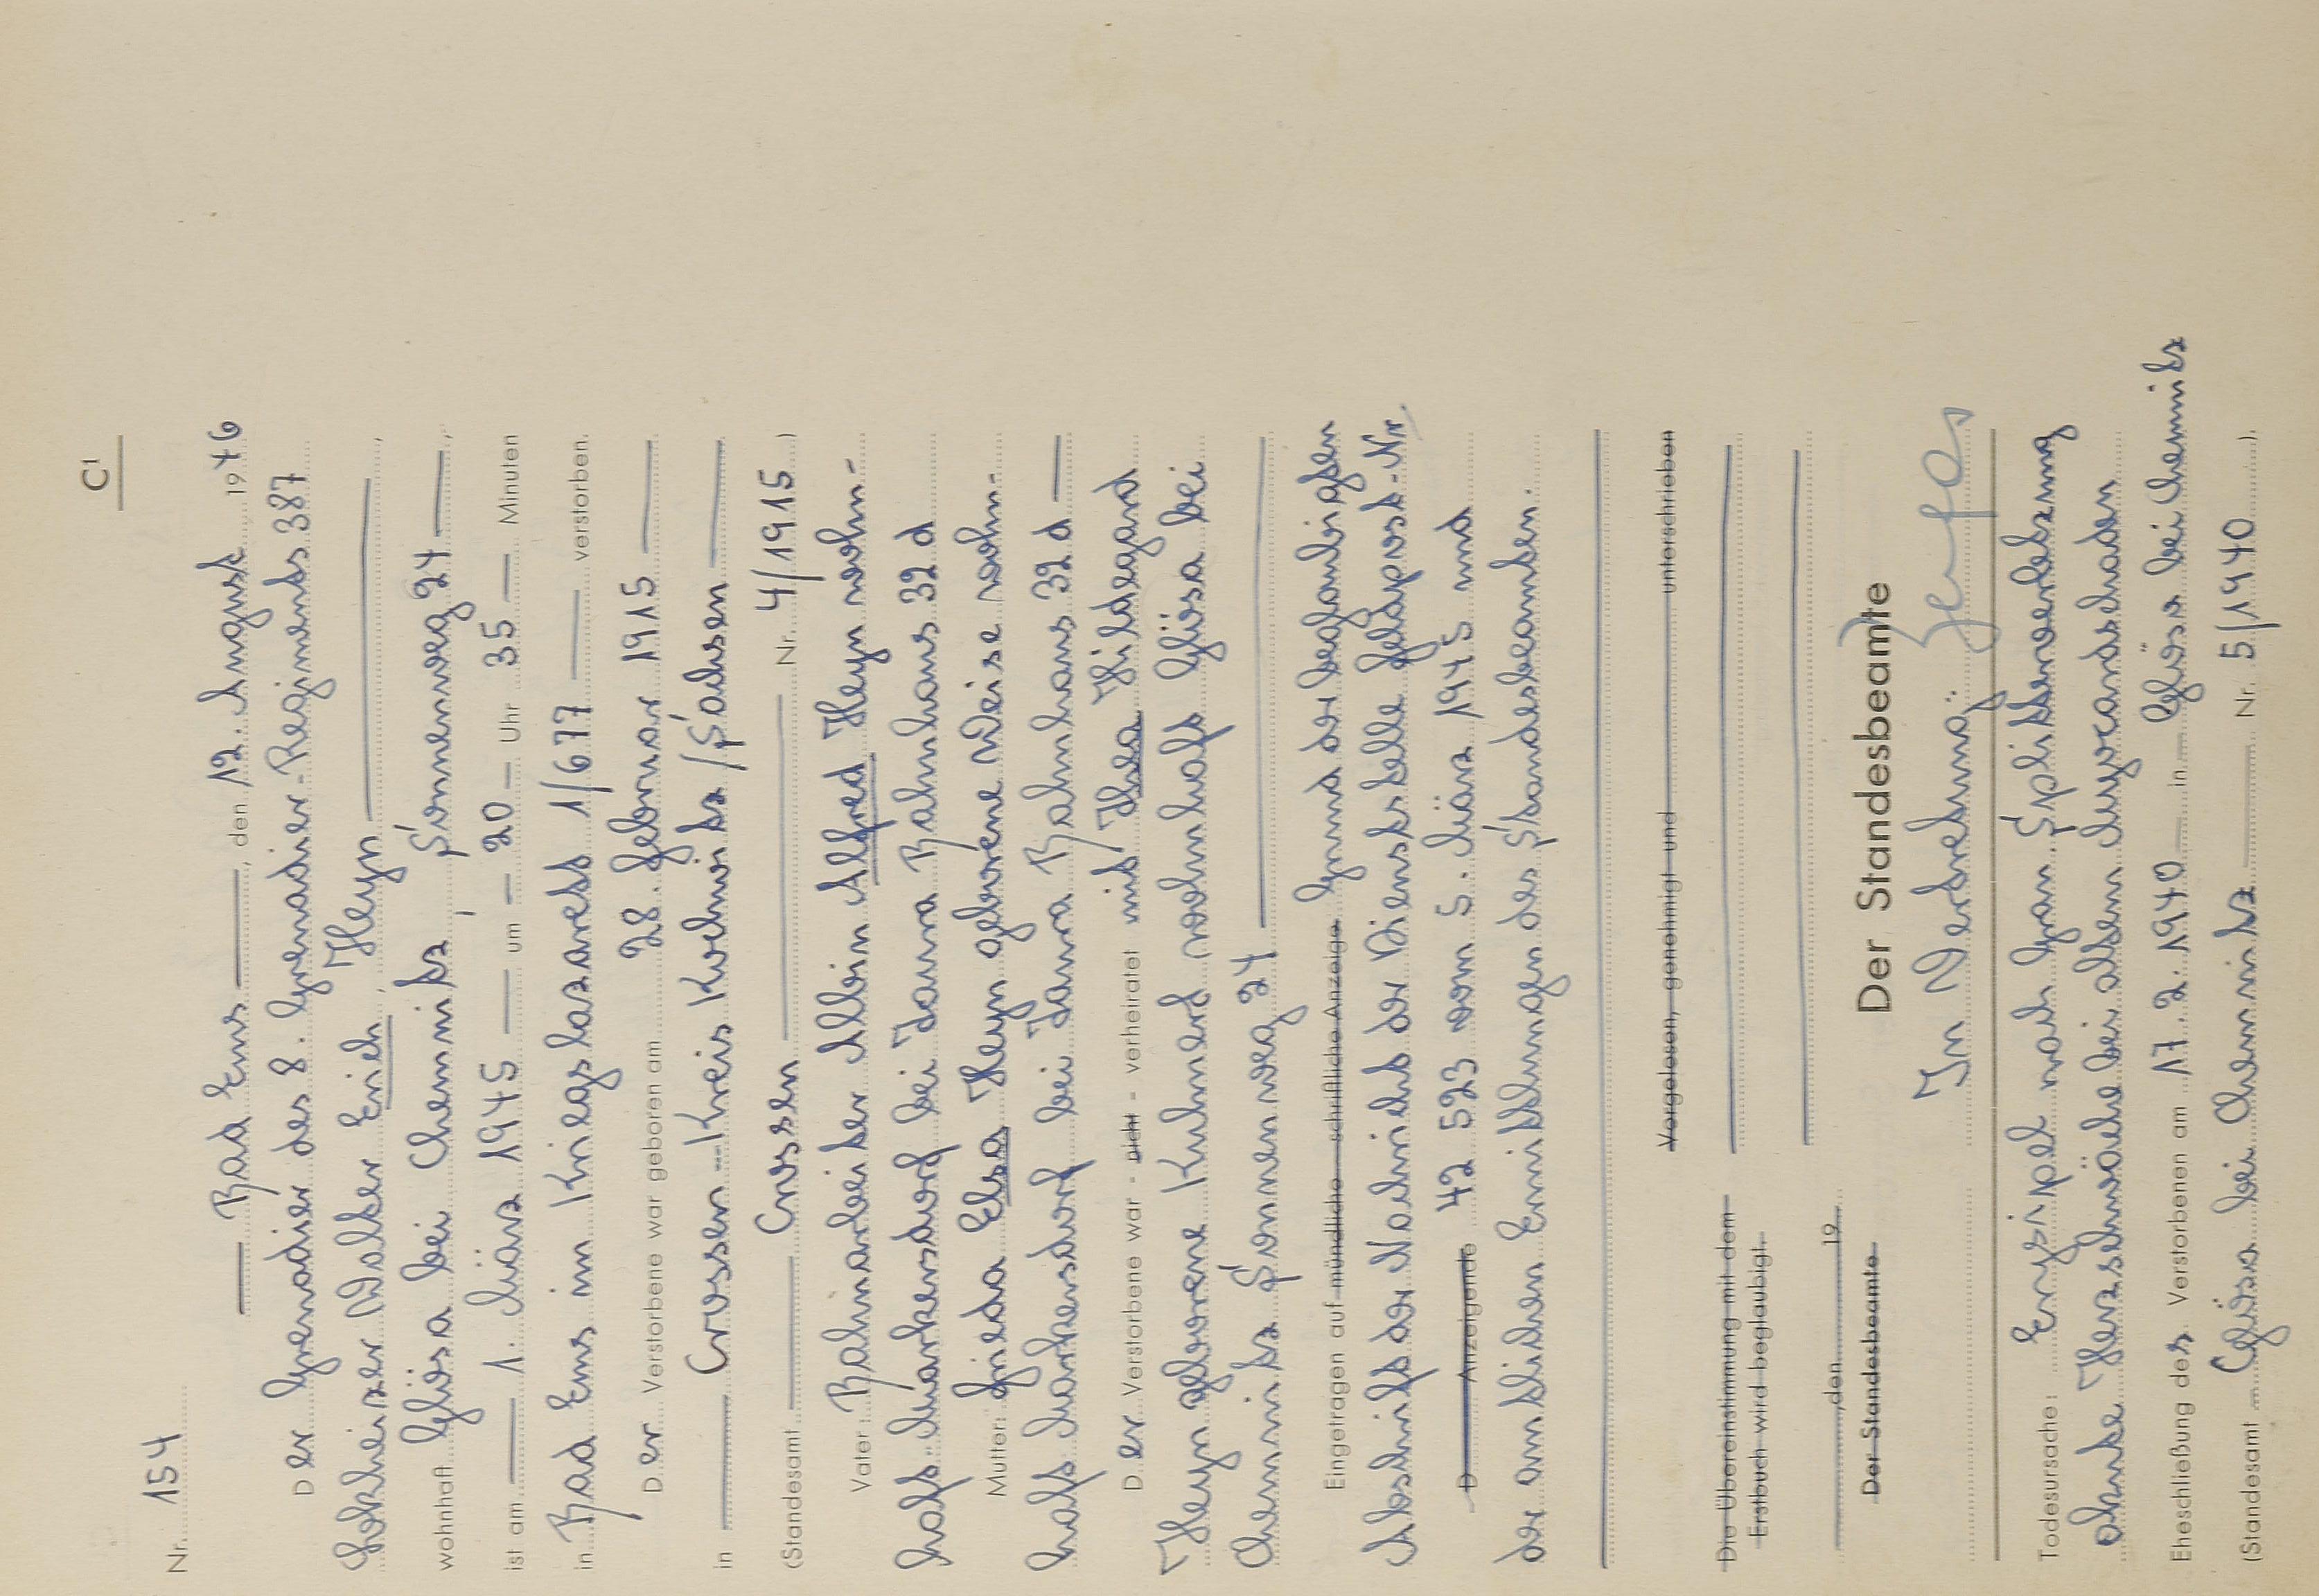 C1
Nr. 154
Bad Ems, den 12. August 1946
Der Grenadier des 8. Grenadier-Regiments 387
Lokheizer Walter Erich Heyn
wohnhaft Glösa bei Chemnitz, Sonnenweg 24
ist am 1. März 1945 um 20 Uhr 35 Minuten
in Bad Ems im Kriegslazarett 1/677 verstorben.
Der Verstorbene war geboren am 28. Februar 1915
in Crossen Kreis Rochwitz/Sachsen
(Standesamt Crossen Nr. 4/1915)
Vater: Bahnarbeiter Albin Alfred Heyn wohn-
haft Markersdorf bei Taura Bahnhaus 32 d
Mutter: Frieda Elsa Heyn geborene Weise wohn-
haft Markersdorf bei Taura Bahnhaus 32 d
Der Verstorbene war - nicht - verheiratet mit Thea Hildegard
Heyn geborene Kuhnert wohnhaft Glösa bei
Chemnitz Sonnenweg 24
Eingetragen auf mündliche - schriftliche Anzeige Grund der beglaubigten
Abschrift der Nachricht der Dienststelle Feldpost-Nr.
D Anzeigende 42 523 vom 5. März 1945 und
der amtlichen Ermittlungen des Standesbeamten.
Vorgelesen, genehmigt und unterschrieben
Die Übereinstimmung mit dem
Erstbuch wird beglaubigt.
, den 19
Der Standesbeamte
Der Standesbeamte
In Vertretung:
Todesursache: Erysipel nach Gran. Splitterverletzung
akute Herzschwäche bei altem Myocardschaden
Eheschließung des Verstorbenen am 17.2.1940 in Glösa bei Chemnitz
(Standesamt Glösa bei Chemnitz Nr. 5/1940).